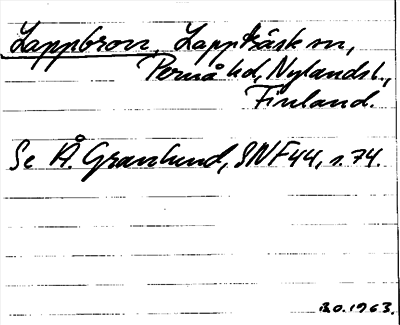 Lappbron, Lappträsk sn,
Pernå hd, Nylands l.,
Finland.
Se Å. Granlund, SNF 44, s. 74.
B.O. 1963.